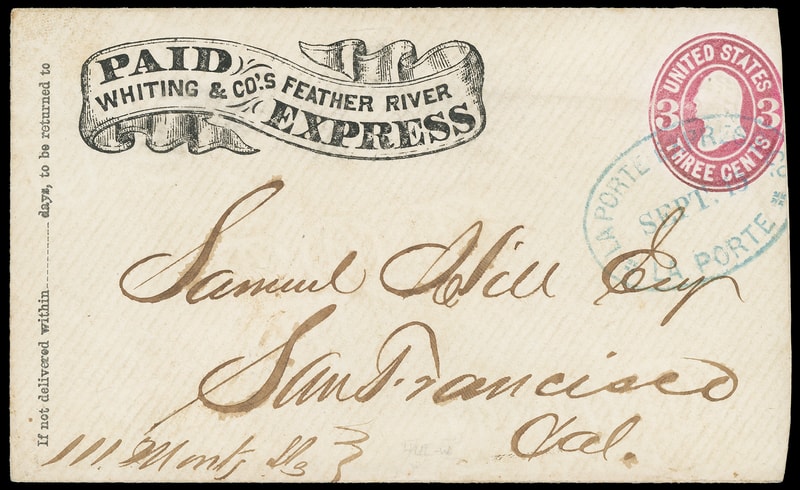 PAID
WHITING & CO'S. FEATHER RIVER
EXPRESS
UNITED STATES
3 3
THREE CENTS
LA PORTE
SEPT. 15
LA PORTE
Samuel Hill Esq
San Francisco
Cal.
111 Montg
If not delivered within days, to be returned to